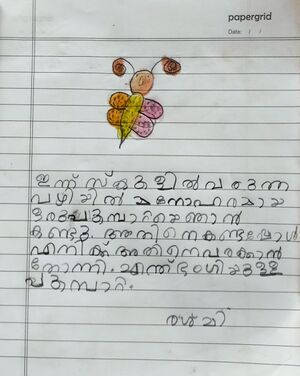 papergrid
Date: / /
ഇന്ന് സ്കൂളിൽ വരുന്ന
വഴിയിൽ മനോഹരമായ
ഒരു പൂമ്പാറ്റയെ ഞാൻ
കണ്ടു. അതിനെ കണ്ടപ്പോൾ
എനിക്ക് അതിനെ വരക്കാൻ
തോന്നി. എന്ത് ഭംഗിയുള്ള
പൂമ്പാറ്റ.
രശ്മി